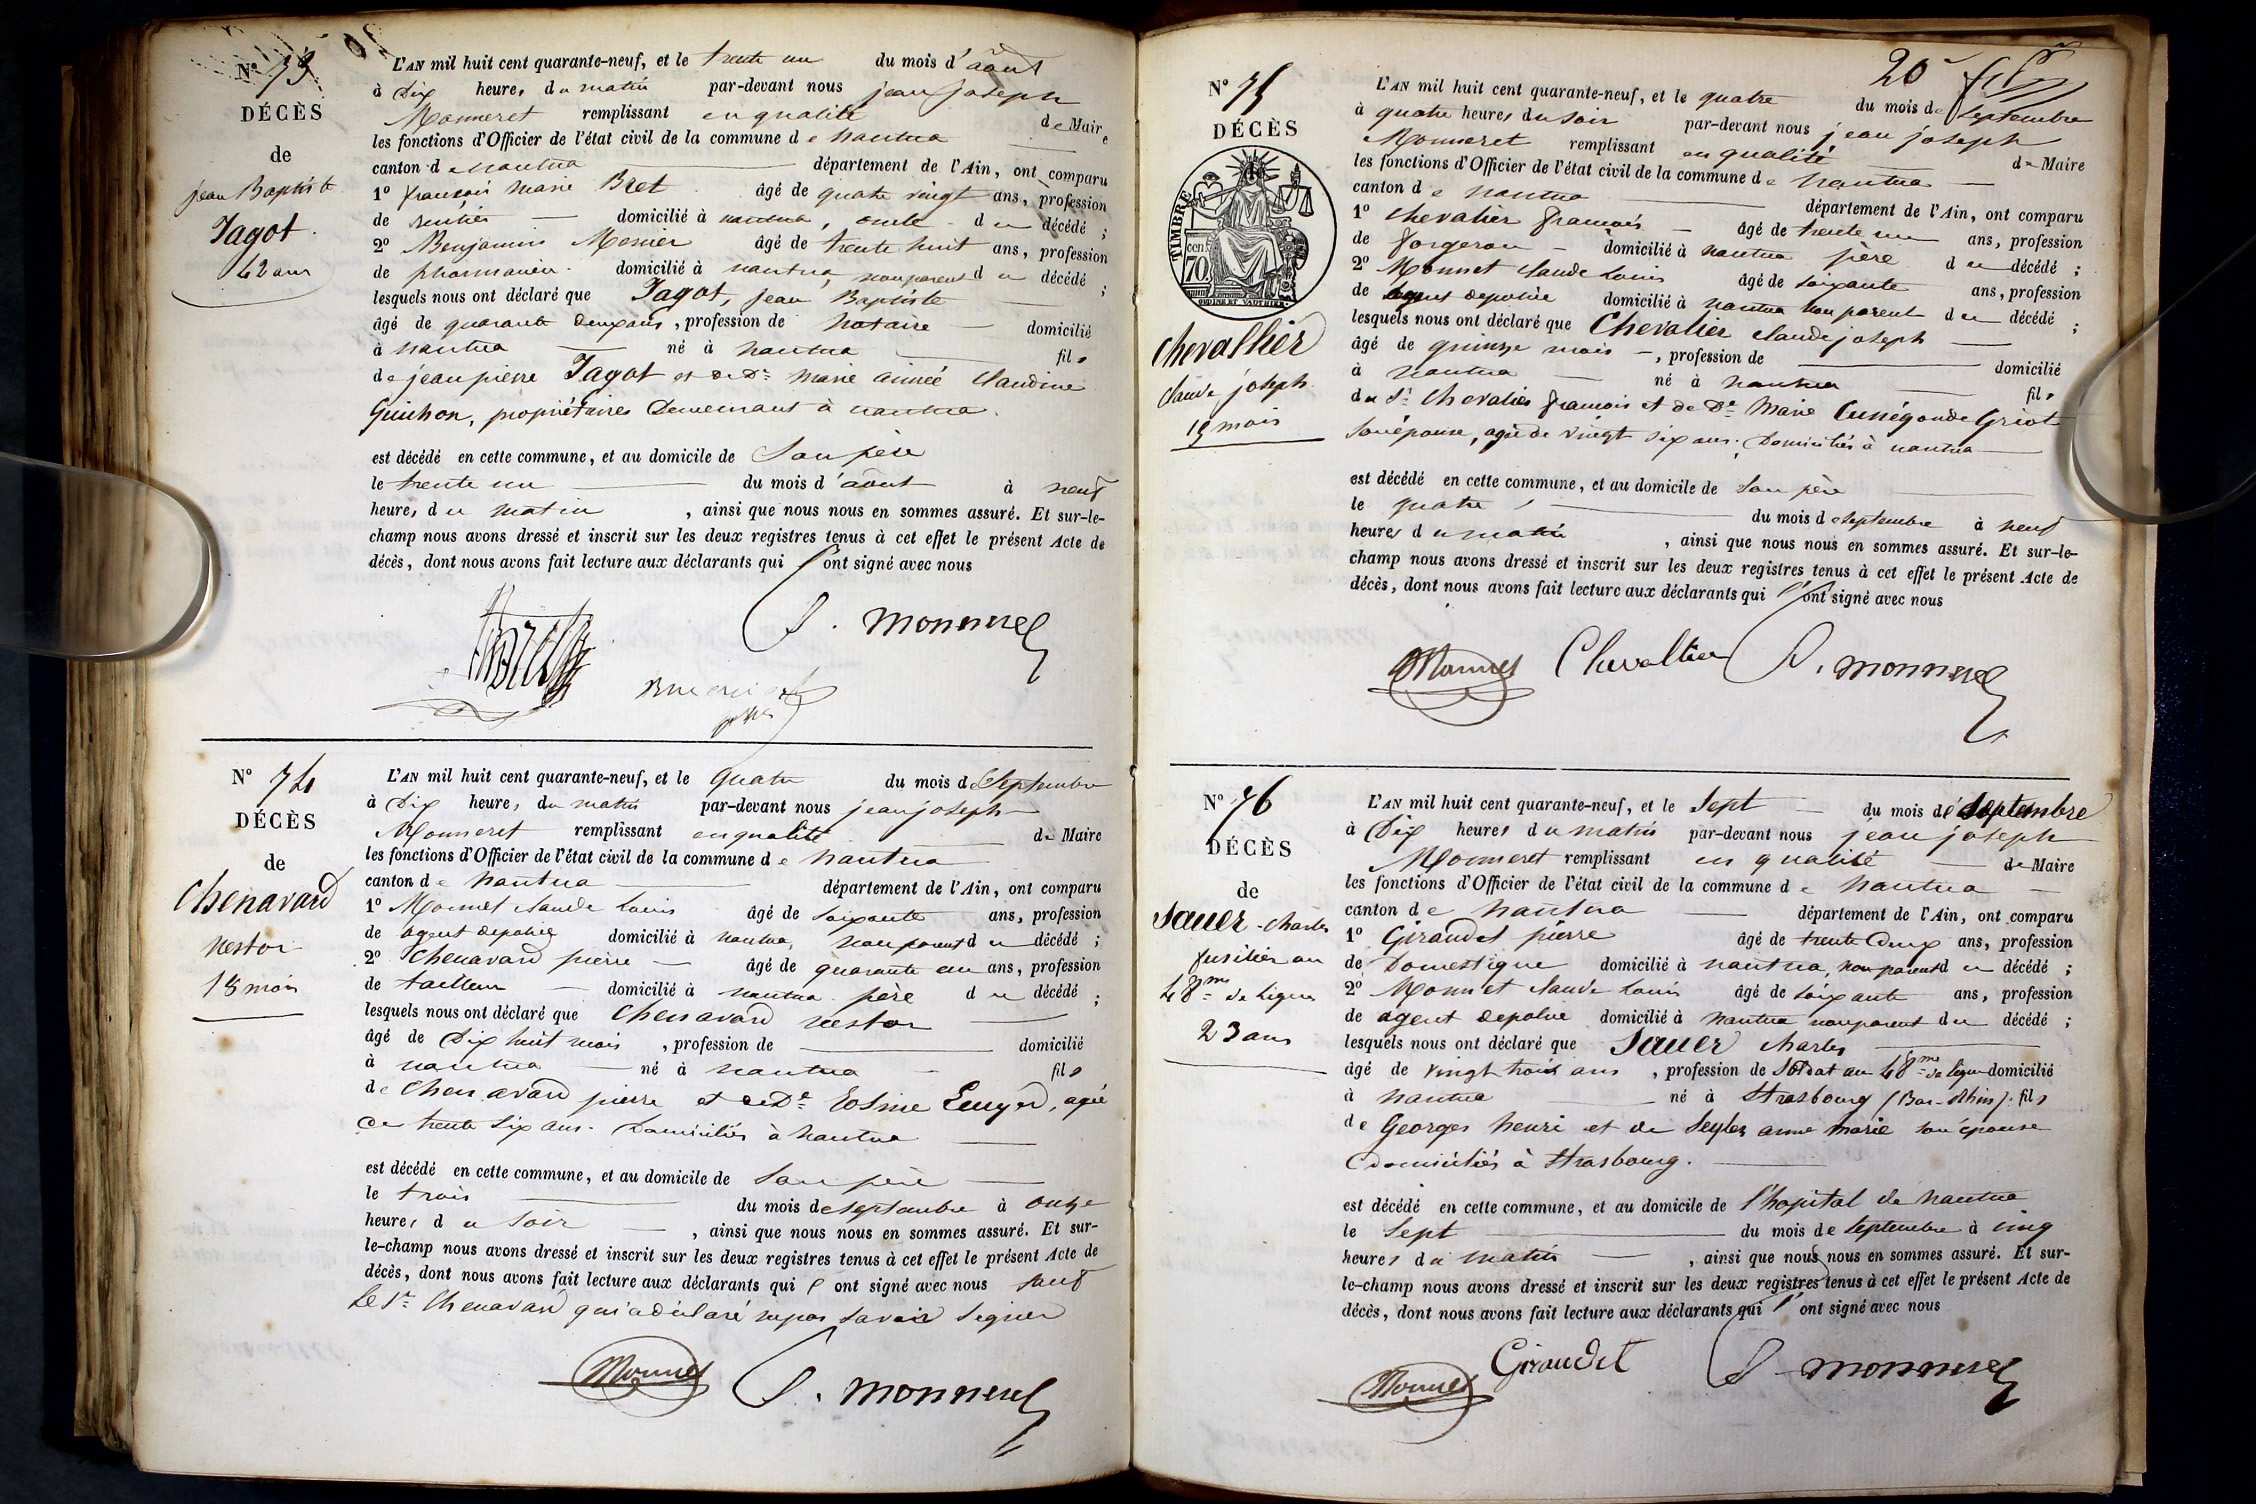 N° 73
DÉCÈS
de
jean Baptiste
Jagot
42 ans
L'AN mil huit cent quarante-neuf, et le trente un du mois d'août
à Dix heures du matin par-devant nous jean joseph
Monneret remplissant en qualité de Maire
les fonctions d'Officier de l'état civil de la commune de nantua
canton de nantua département de l'Ain, ont comparu
1° françois marie Bret âgé de quatre vingt ans, profession
de rentier domicilié à nantua, oncle du décédé ;
2° Benjamin Mercier âgé de trente huit ans, profession
de pharmacien domicilié à nantua, non parent du décédé ;
lesquels nous ont déclaré que Jagot, jean Baptiste
âgé de quarante deux ans, profession de notaire domicilié
à nantua né à nantua fils
de jean pierre Jagot et de De marie aimée Claudine
Guichon, propriétaires Demeurant à nantua.
est décédé en cette commune, et au domicile de Son père
le trente un du mois d'août à neuf
heures du matin, ainsi que nous nous en sommes assuré. Et sur-le-
champ nous avons dressé et inscrit sur les deux registres tenus à cet effet le présent Acte de
décès, dont nous avons fait lecture aux déclarants qui ont signé avec nous
J. Monneret
N° 74
DÉCÈS
de
Chenavard
nestor
18 mois
L'AN mil huit cent quarante-neuf, et le quatre du mois de Septembre
à Dix heures du matin par-devant nous jean joseph
Monneret remplissant en qualité de Maire
les fonctions d'Officier de l'état civil de la commune de nantua
canton de nantua département de l'Ain, ont comparu
1° Monnet claude Louis âgé de soixante ans, profession
de agent de police domicilié à nantua, non parent du décédé ;
2° Chenavard pierre âgé de quarante un ans, profession
de tailleur domicilié à nantua père du décédé ;
lesquels nous ont déclaré que Chenavard nestor
âgé de Dix huit mois, profession de domicilié
à nantua né à nantua fils
de Chenavard pierre et de De Rosine, agée
de trente Six ans. Domiciliés à nantua
est décédé en cette commune, et au domicile de Son père
le trois du mois de septembre à onze
heures du Soir, ainsi que nous nous en sommes assuré. Et sur-
le-champ nous avons dressé et inscrit sur les deux registres tenus à cet effet le présent Acte de
décès, dont nous avons fait lecture aux déclarants qui ont signé avec nous sauf
le Sr Chenavard qui a déclaré ne pas savoir signer
Monnet J. Monneret
20
N° 75
DÉCÈS
TIMBRE
70 cen.
chevallier
Claude joseph
15 mois
L'AN mil huit cent quarante-neuf, et le quatre du mois de septembre
à quatre heures du soir par-devant nous jean joseph
Monneret remplissant en qualité de Maire
les fonctions d'Officier de l'état civil de la commune de nantua
canton de nantua département de l'Ain, ont comparu
1° chevalier françois âgé de trente un ans, profession
de forgeron domicilié à nantua père du décédé ;
2° Monnet claude Louis âgé de soixante ans, profession
de agent de police domicilié à nantua non parent du décédé ;
lesquels nous ont déclaré que Chevalier claude joseph
âgé de quinze mois, profession de domicilié
à nantua né à nantua fils
du Sr Chevalier françois et de De Marie Cunégonde Griot
son épouse, agée de vingt six ans. Domiciliés à nantua
est décédé en cette commune, et au domicile de Son père
le quatre du mois de septembre à neuf
heures du matin, ainsi que nous nous en sommes assuré. Et sur-le-
champ nous avons dressé et inscrit sur les deux registres tenus à cet effet le présent Acte de
décès, dont nous avons fait lecture aux déclarants qui ont signé avec nous
Monnet Chevallier J. Monneret
N° 76
DÉCÈS
de
Sauer charles
fusilier au
48me de ligne
23 ans
L'AN mil huit cent quarante-neuf, et le Sept du mois de septembre
à Dix heures du matin par-devant nous jean joseph
Monneret remplissant en qualité de Maire
les fonctions d'Officier de l'état civil de la commune de nantua
canton de nantua département de l'Ain, ont comparu
1° Giraudet pierre âgé de trente Deux ans, profession
de Domestique domicilié à nantua, non parent du décédé ;
2° Monnet claude Louis âgé de soixante ans, profession
de agent de police domicilié à nantua non parent du décédé ;
lesquels nous ont déclaré que Sauer charles
âgé de vingt trois ans, profession de Soldat au 48me de ligne domicilié
à nantua né à Strasbourg (Bas-Rhin) fils
de Georges henri et de Seyler anne marie son épouse
domiciliés à Strasbourg.
est décédé en cette commune, et au domicile de l'hopital de nantua
le Sept du mois de septembre à cinq
heures du matin, ainsi que nous nous en sommes assuré. Et sur-
le-champ nous avons dressé et inscrit sur les deux registres tenus à cet effet le présent Acte de
décès, dont nous avons fait lecture aux déclarants qui ont signé avec nous
Monnet Giraudet J. Monneret